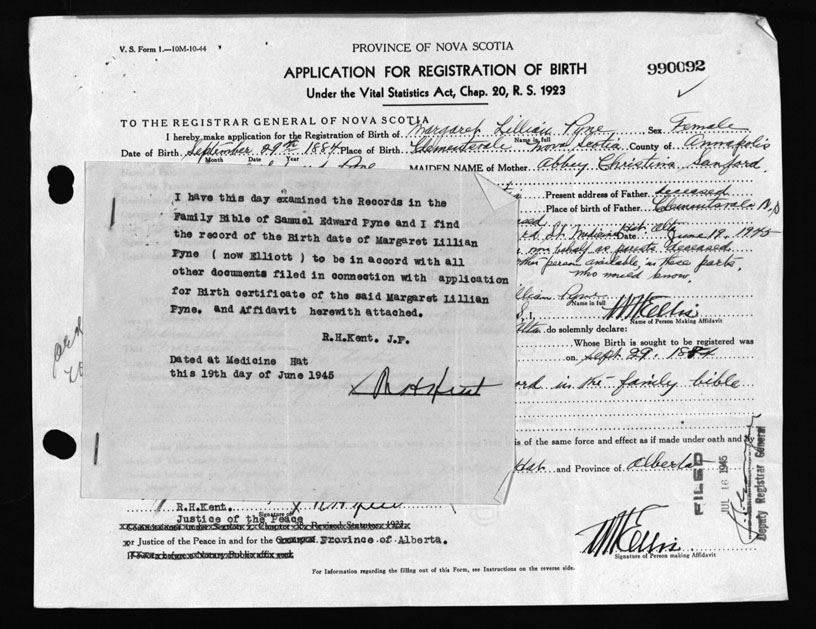 V. S. Form 1.—10M-10-44
PROVINCE OF NOVA SCOTIA
APPLICATION FOR REGISTRATION OF BIRTH
990092
Under the Vital Statistics Act, Chap. 20, R. S. 1923
TO THE REGISTRAR GENERAL OF NOVA SCOTIA
I hereby make application for the Registration of Birth of Margaret Lillian Pyne, Sex Female
Name in full
Date of Birth September 29th 1884 Place of Birth Clementsvale Nova Scotia County of Annapolis
Month Date Year
Pyne MAIDEN NAME of Mother Abbey Christina Sanford.
Present address of Father deceased
Place of birth of Father Clementsvale N.S
Date June 19. 1945
on behalf as parents deceased
other person available, in these parts,
who would know.
Lillian Pyne
Name in full
I, W H Ellis
Name of Person Making Affidavit
Alta do solemnly declare:
Whose Birth is sought to be registered was
on Sept. 29. 1884
in the family bible
is of the same force and effect as if made under oath and
Hat and Province of Alberta
FILED
JUL 16 1945
Deputy Registrar General
I have this day examined the Records in the
Family Bible of Samuel Edward Pyne and I find
the record of the Birth date of Margaret Lillian
Pyne ( now Elliott ) to be in accord with all
other documents filed in connection with application
for Birth certificate of the said Margaret Lillian
Pyne. and Affidavit herewith attached.
R.H.Kent. J.P.
Dated at Medicine Hat
this 19th day of June 1945
x R H Kent
R.H.Kent.
Signature of
Justice of the Peace
or Justice of the Peace in and for the Province of Alberta.
W H Ellis
Signature of Person making Affidavit
For Information regarding the filling out of this Form, see Instructions on the reverse side.